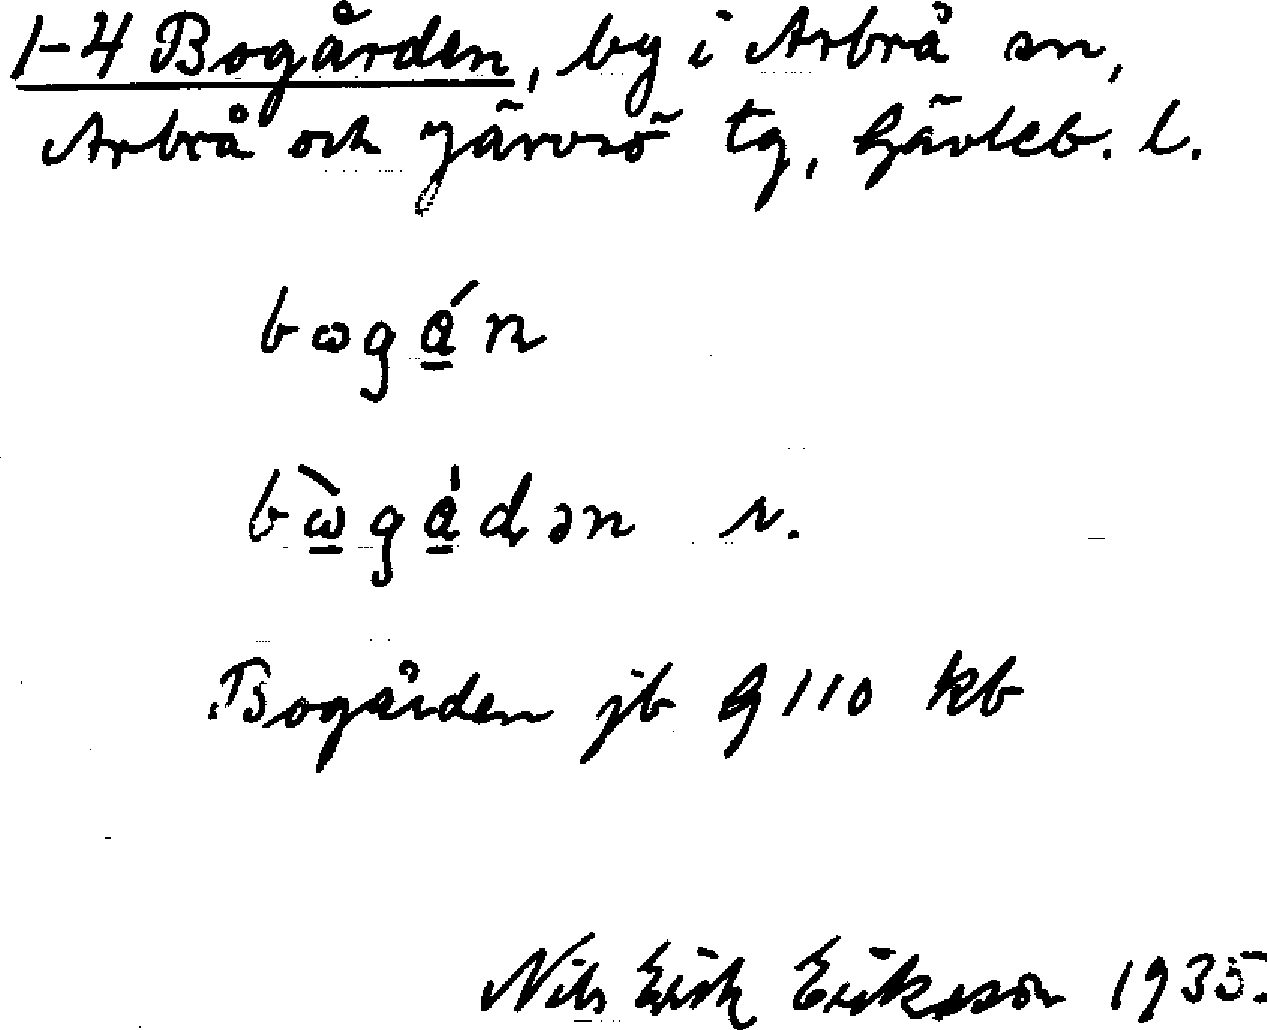 1-4 Bogården, by i Arbrå sn,
Arbrå och Järvsö tg, Gävleb. l.
bωgá̱n
bὼ̱gá̱dən r.
Bogården jb G110 kb
Nils Erik Eriksson 1935.